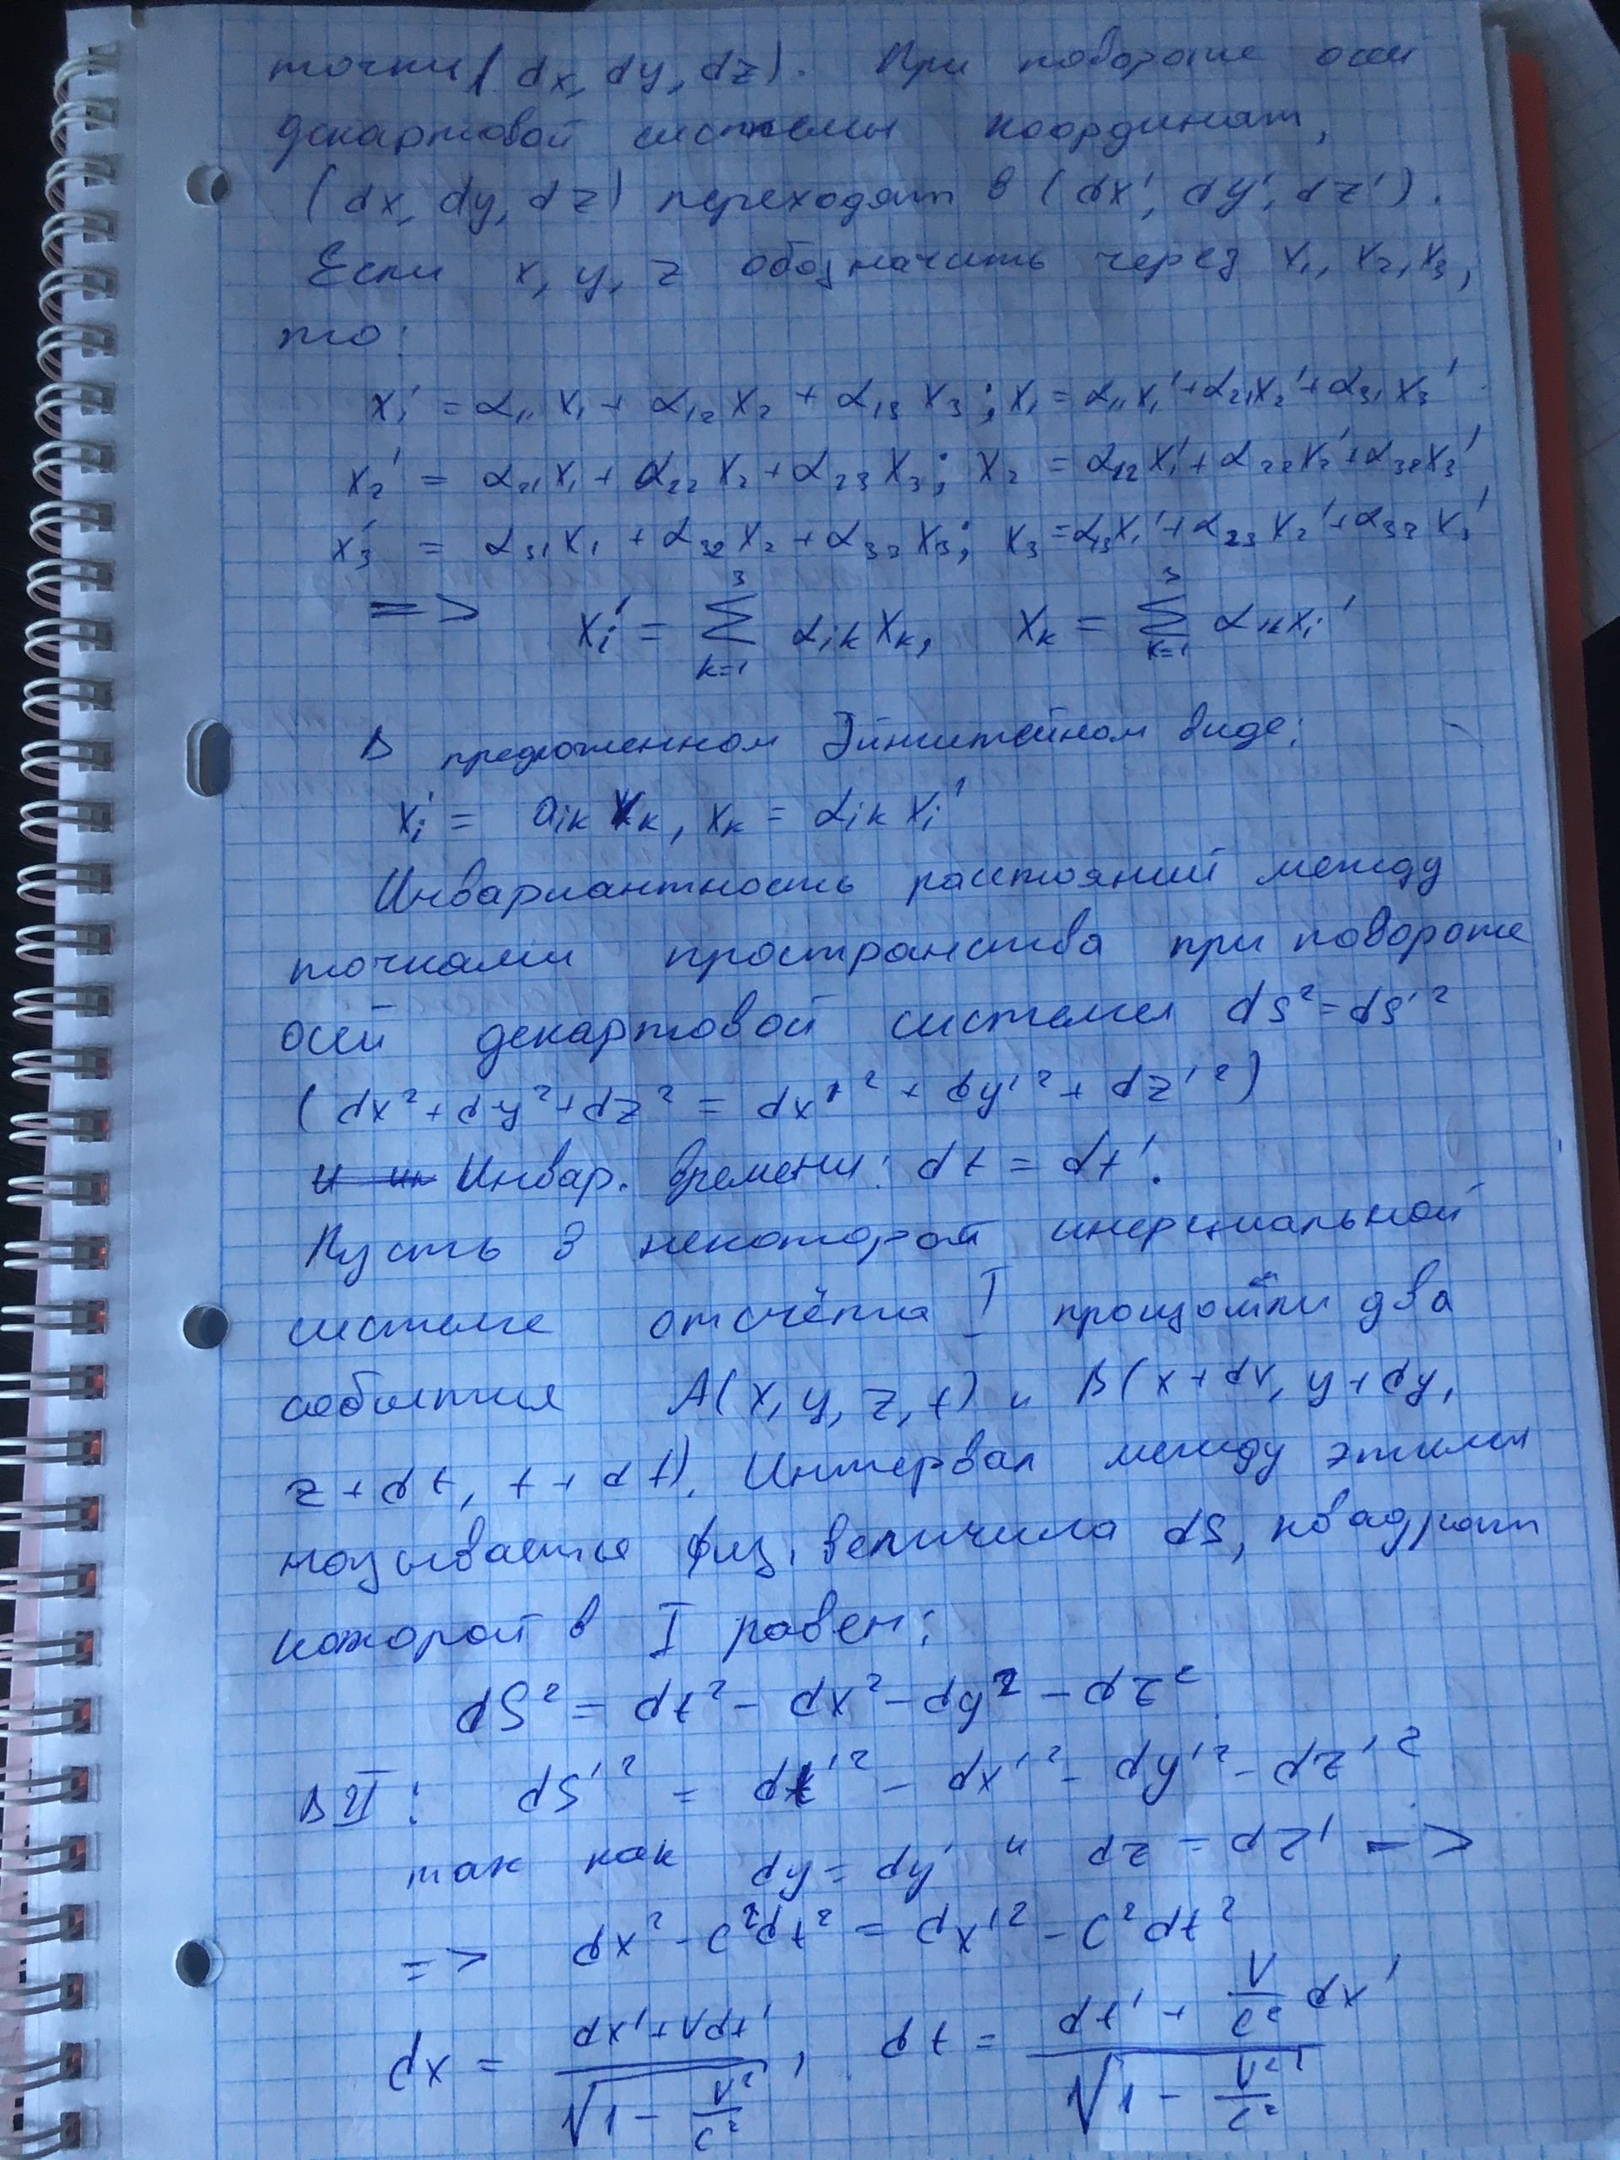 точки (dx, dy, dz). При повороте осей
декартовой системы координат,
(dx, dy, dz) переходят в (dx', dy', dz').
Если x, y, z обозначить через x₁, x₂, x₃,
то:
x₁' = α₁₁ x₁ + α₁₂ x₂ + α₁₃ x₃; x₁ = α₁₁x₁' + α₂₁x₂' + α₃₁x₃'
x₂' = α₂₁x₁ + α₂₂ x₂ + α₂₃ x₃; x₂ = α₁₂x₁' + α₂₂x₂' + α₃₂x₃'
x₃' = α₃₁x₁ + α₃₂x₂ + α₃₃x₃; x₃ = α₁₃x₁' + α₂₃x₂' + α₃₃x₃'
=> xᵢ' = ∑ₖ₌₁³ αᵢₖ xₖ, xₖ = ∑ₖ₌₁³ αᵢₖxᵢ'
В предложенном Эйнштейном виде:
xᵢ' = aᵢₖ xₖ, xₖ = αᵢₖ xᵢ'
Инвариантность расстояний между
точками пространства при повороте
осей декартовой системы dS² = dS'²
(dx² + dy² + dz² = dx'² + dy'² + dz'²)
Инвар. времени: dt = dt'.
Пусть в некоторой инерциальной
системе отсчёта I прошли два
события A(x, y, z, t) и B(x + dx, y + dy,
z + dt, t + dt). Интервал между этими
называется физ. величина dS, квадрат
которой в I равен:
dS² = dt² - dx² - dy² - dz²
В II: dS'² = dt'² - dx'² - dy'² - dz'²
так как dy = dy' и dz = dz' =>
=> dx² - c²dt² = dx'² - c²dt²
dx = (dx' + Vdt') / √(1 - V²/c²), dt = (dt' + V/c² dx') / √(1 - V²/c²)